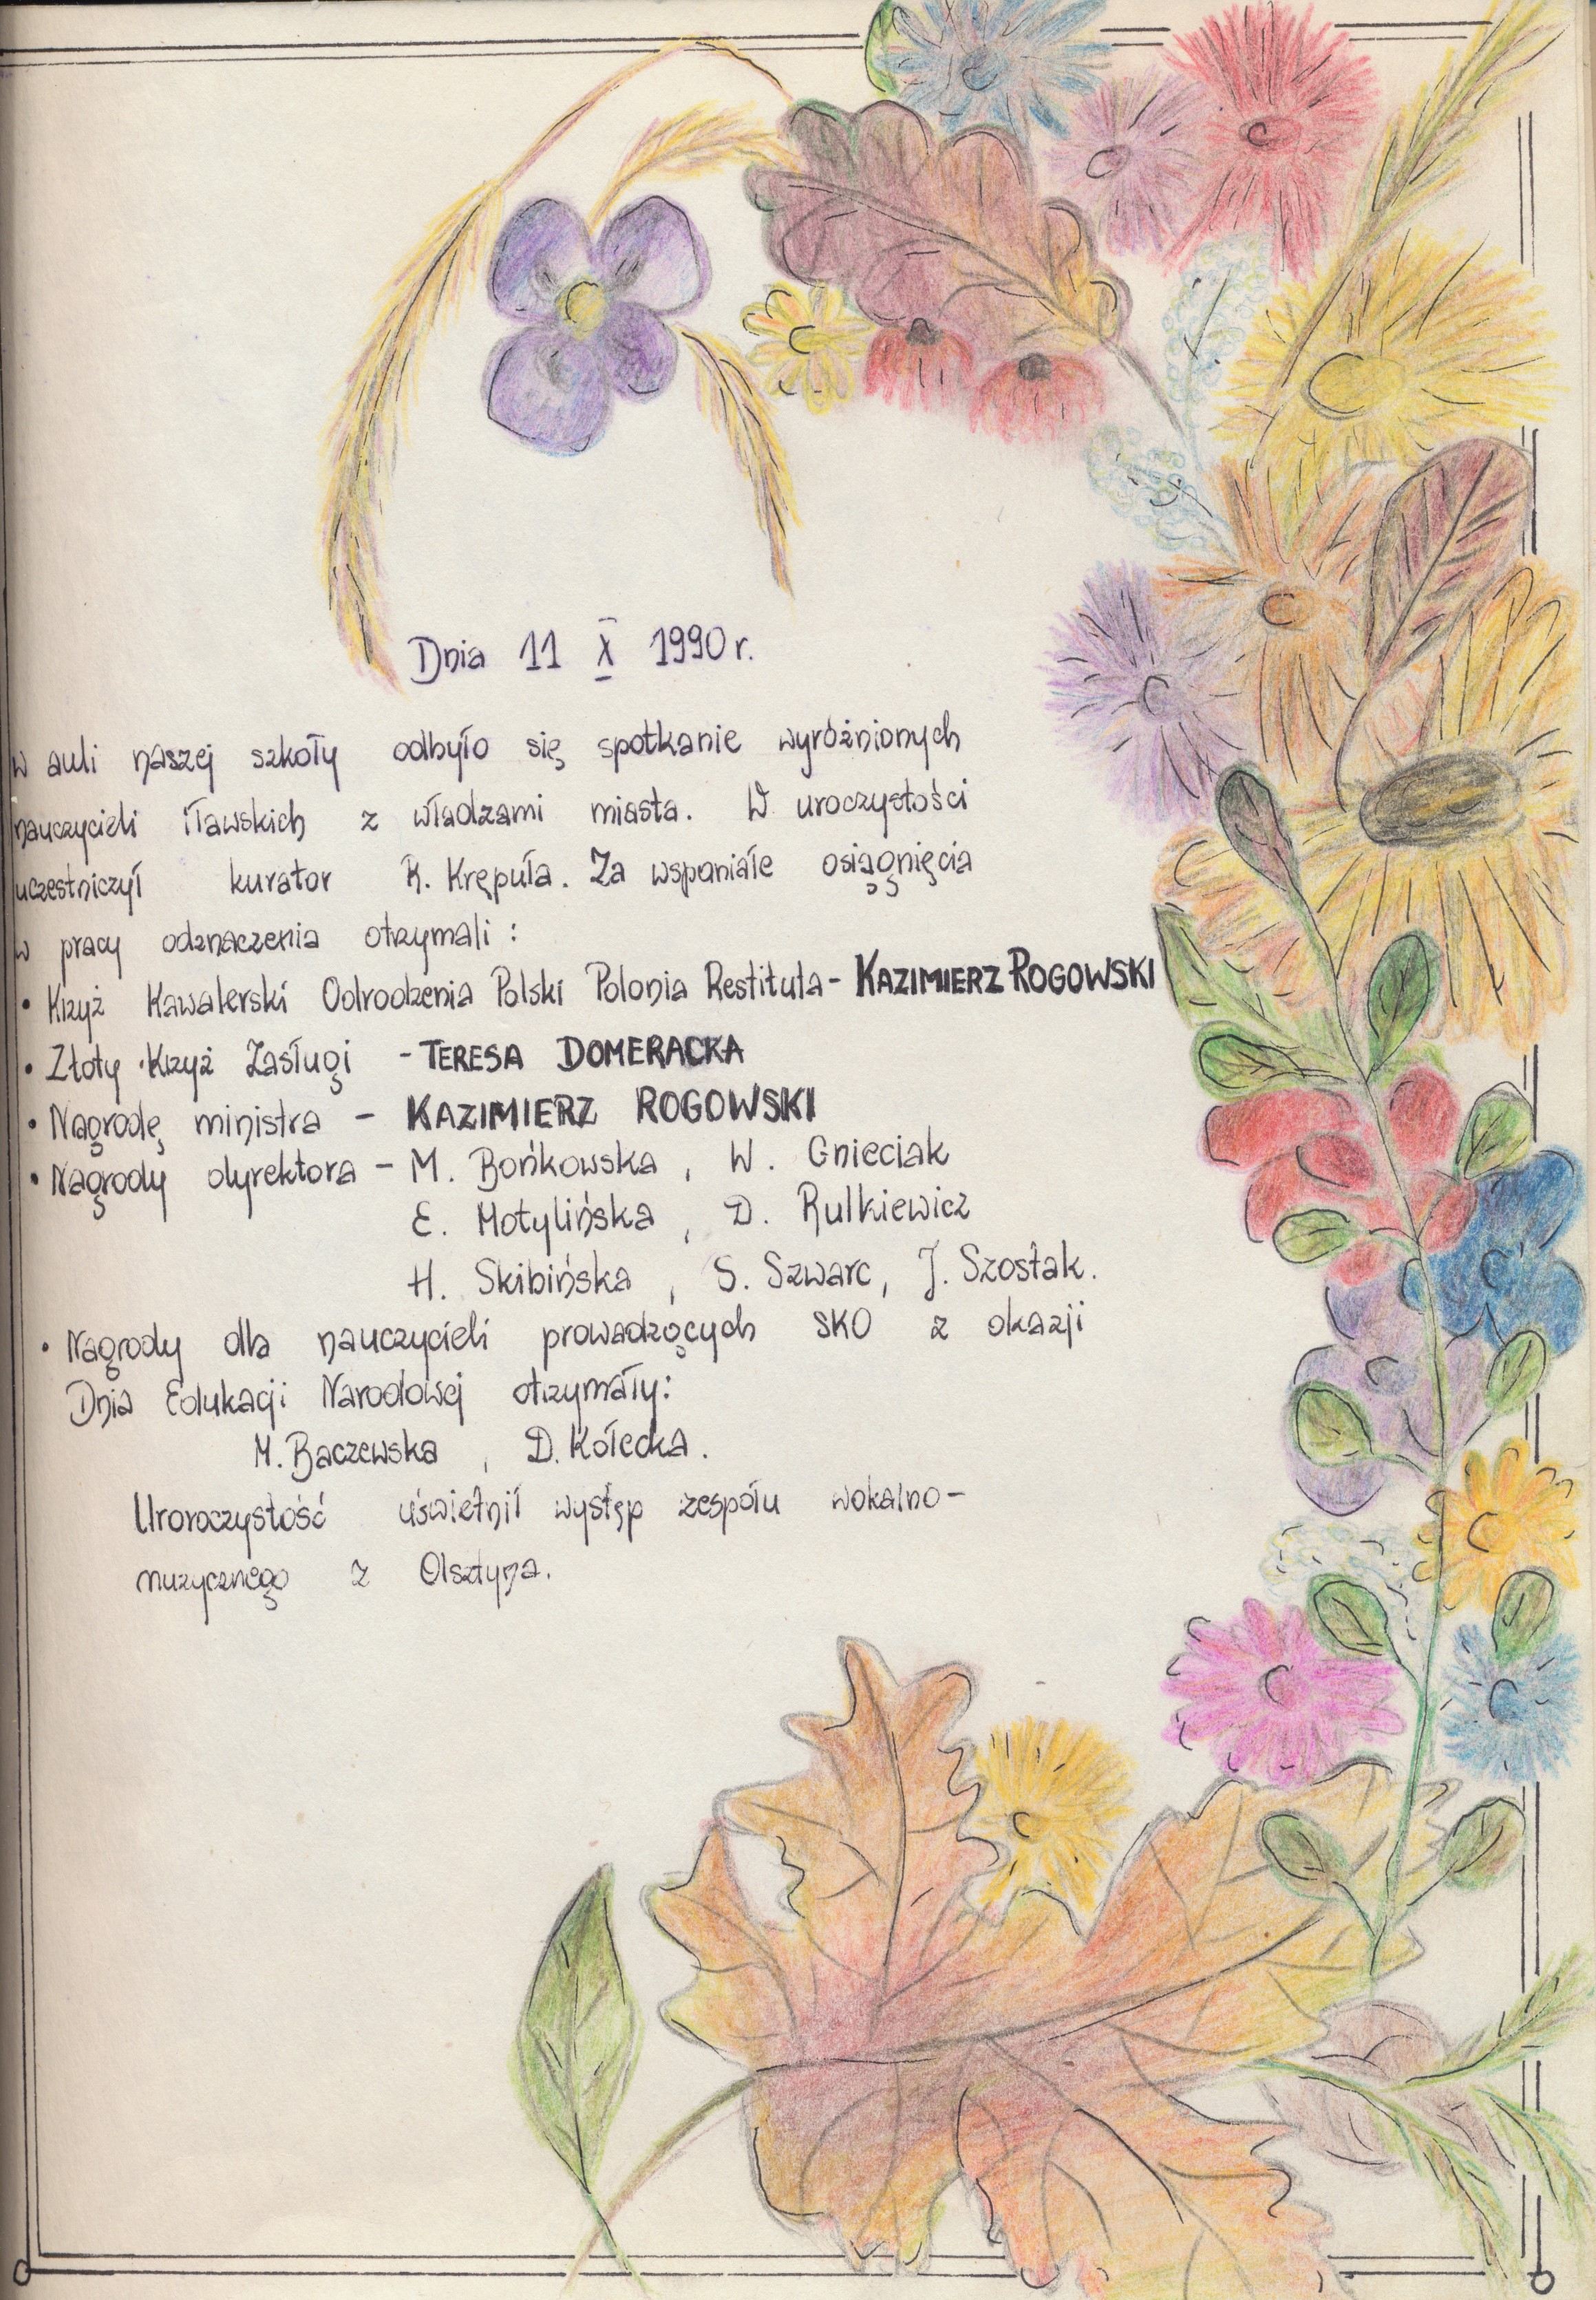 Dnia 11 X 1990 r.
w auli naszej szkoły odbyło się spotkanie wyróżnionych
nauczycieli iławskich z władzami miasta. W uroczystości
uczestniczył kurator R. Krępuła. Za wspaniałe osiągnięcia
w pracy odznaczenia otrzymali :
• Krzyż Kawalerski Odrodzenia Polski Polonia Restituta - KAZIMIERZ ROGOWSKI
• Złoty Krzyż Zasługi - TERESA DOMERACKA
• Nagrodę ministra - KAZIMIERZ ROGOWSKI
• Nagrody dyrektora - M. Bońkowska , W. Gnieciak
E. Motylińska , D. Rulkiewicz
H. Skibińska , S. Szwarc, J. Szostak.
• Nagrody dla nauczycieli prowadzących SKO z okazji
Dnia Edukacji Narodowej otrzymały:
M. Baczewska , D. Kołecka.
Uroroczystość uświetnił występ zespołu wokalno-
muzycznego z Olsztyna.